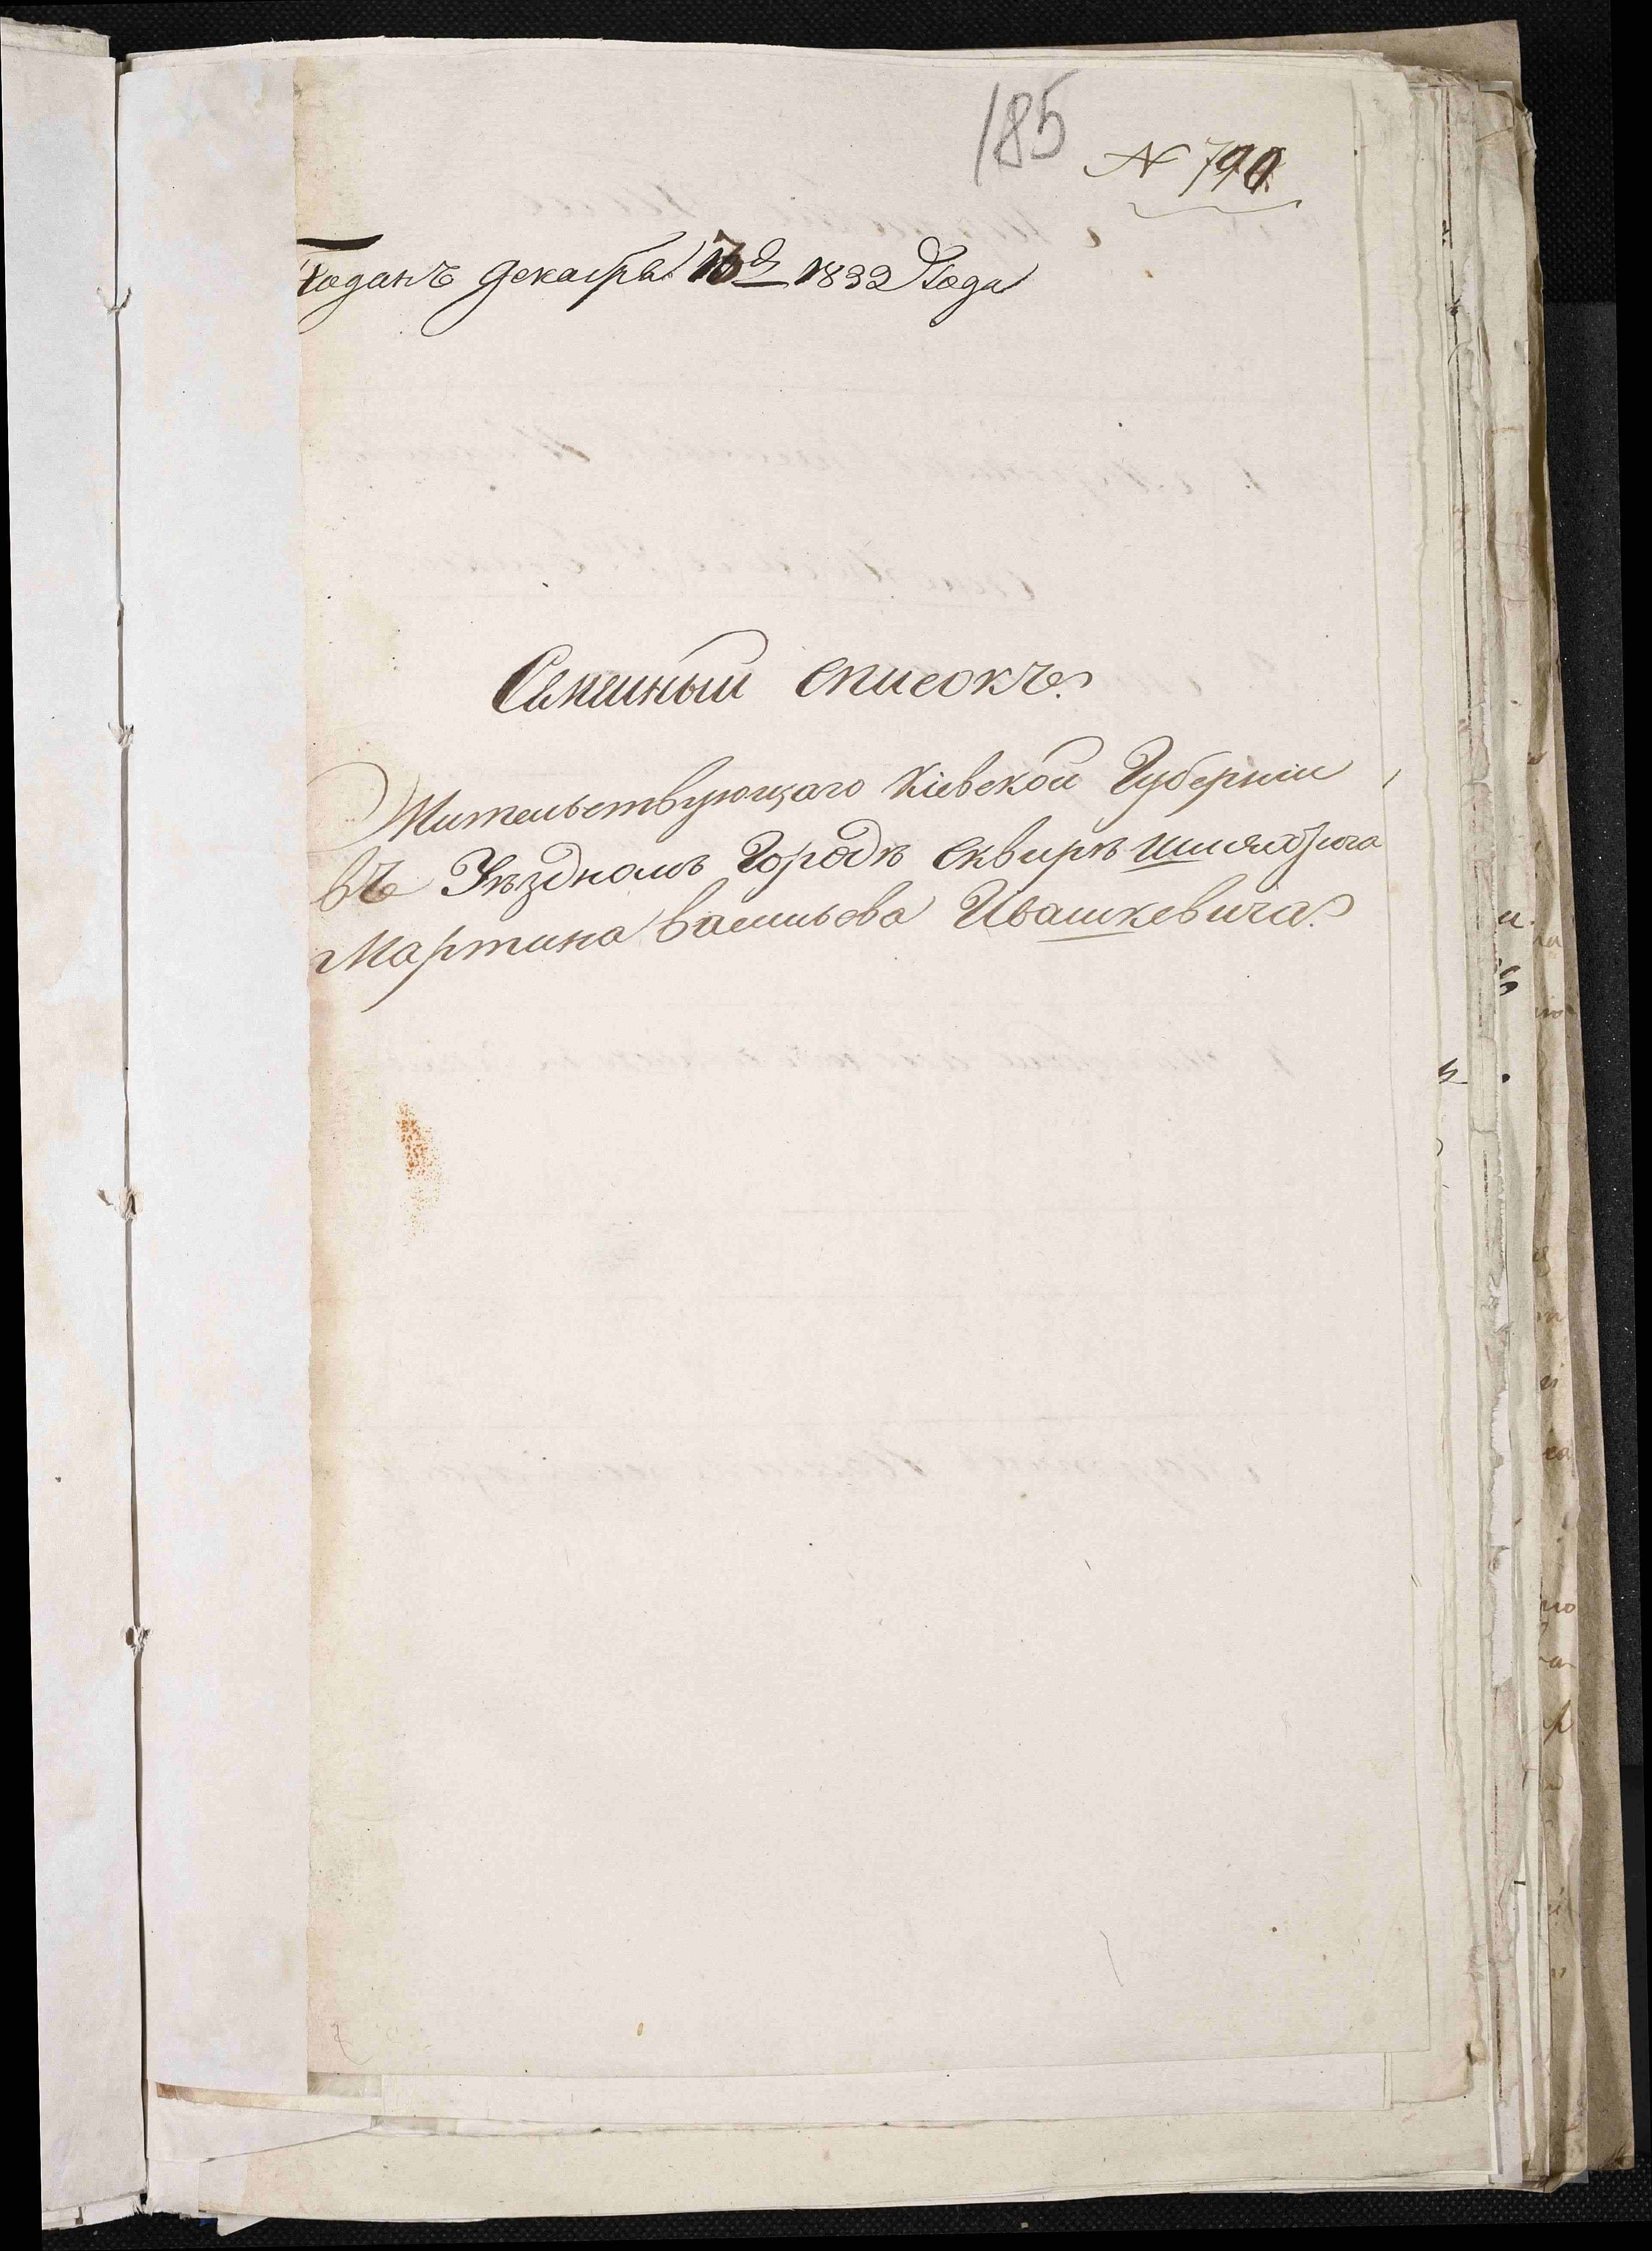 185
N 790
Поданъ декабря 1832 Года
Семеиныи списокъ.
Жительствующаго Кіевской Губерніи
въ Уѣздномъ Городѣ Сквирѣ шляхтича
Мартина васильова Ивашкевича.